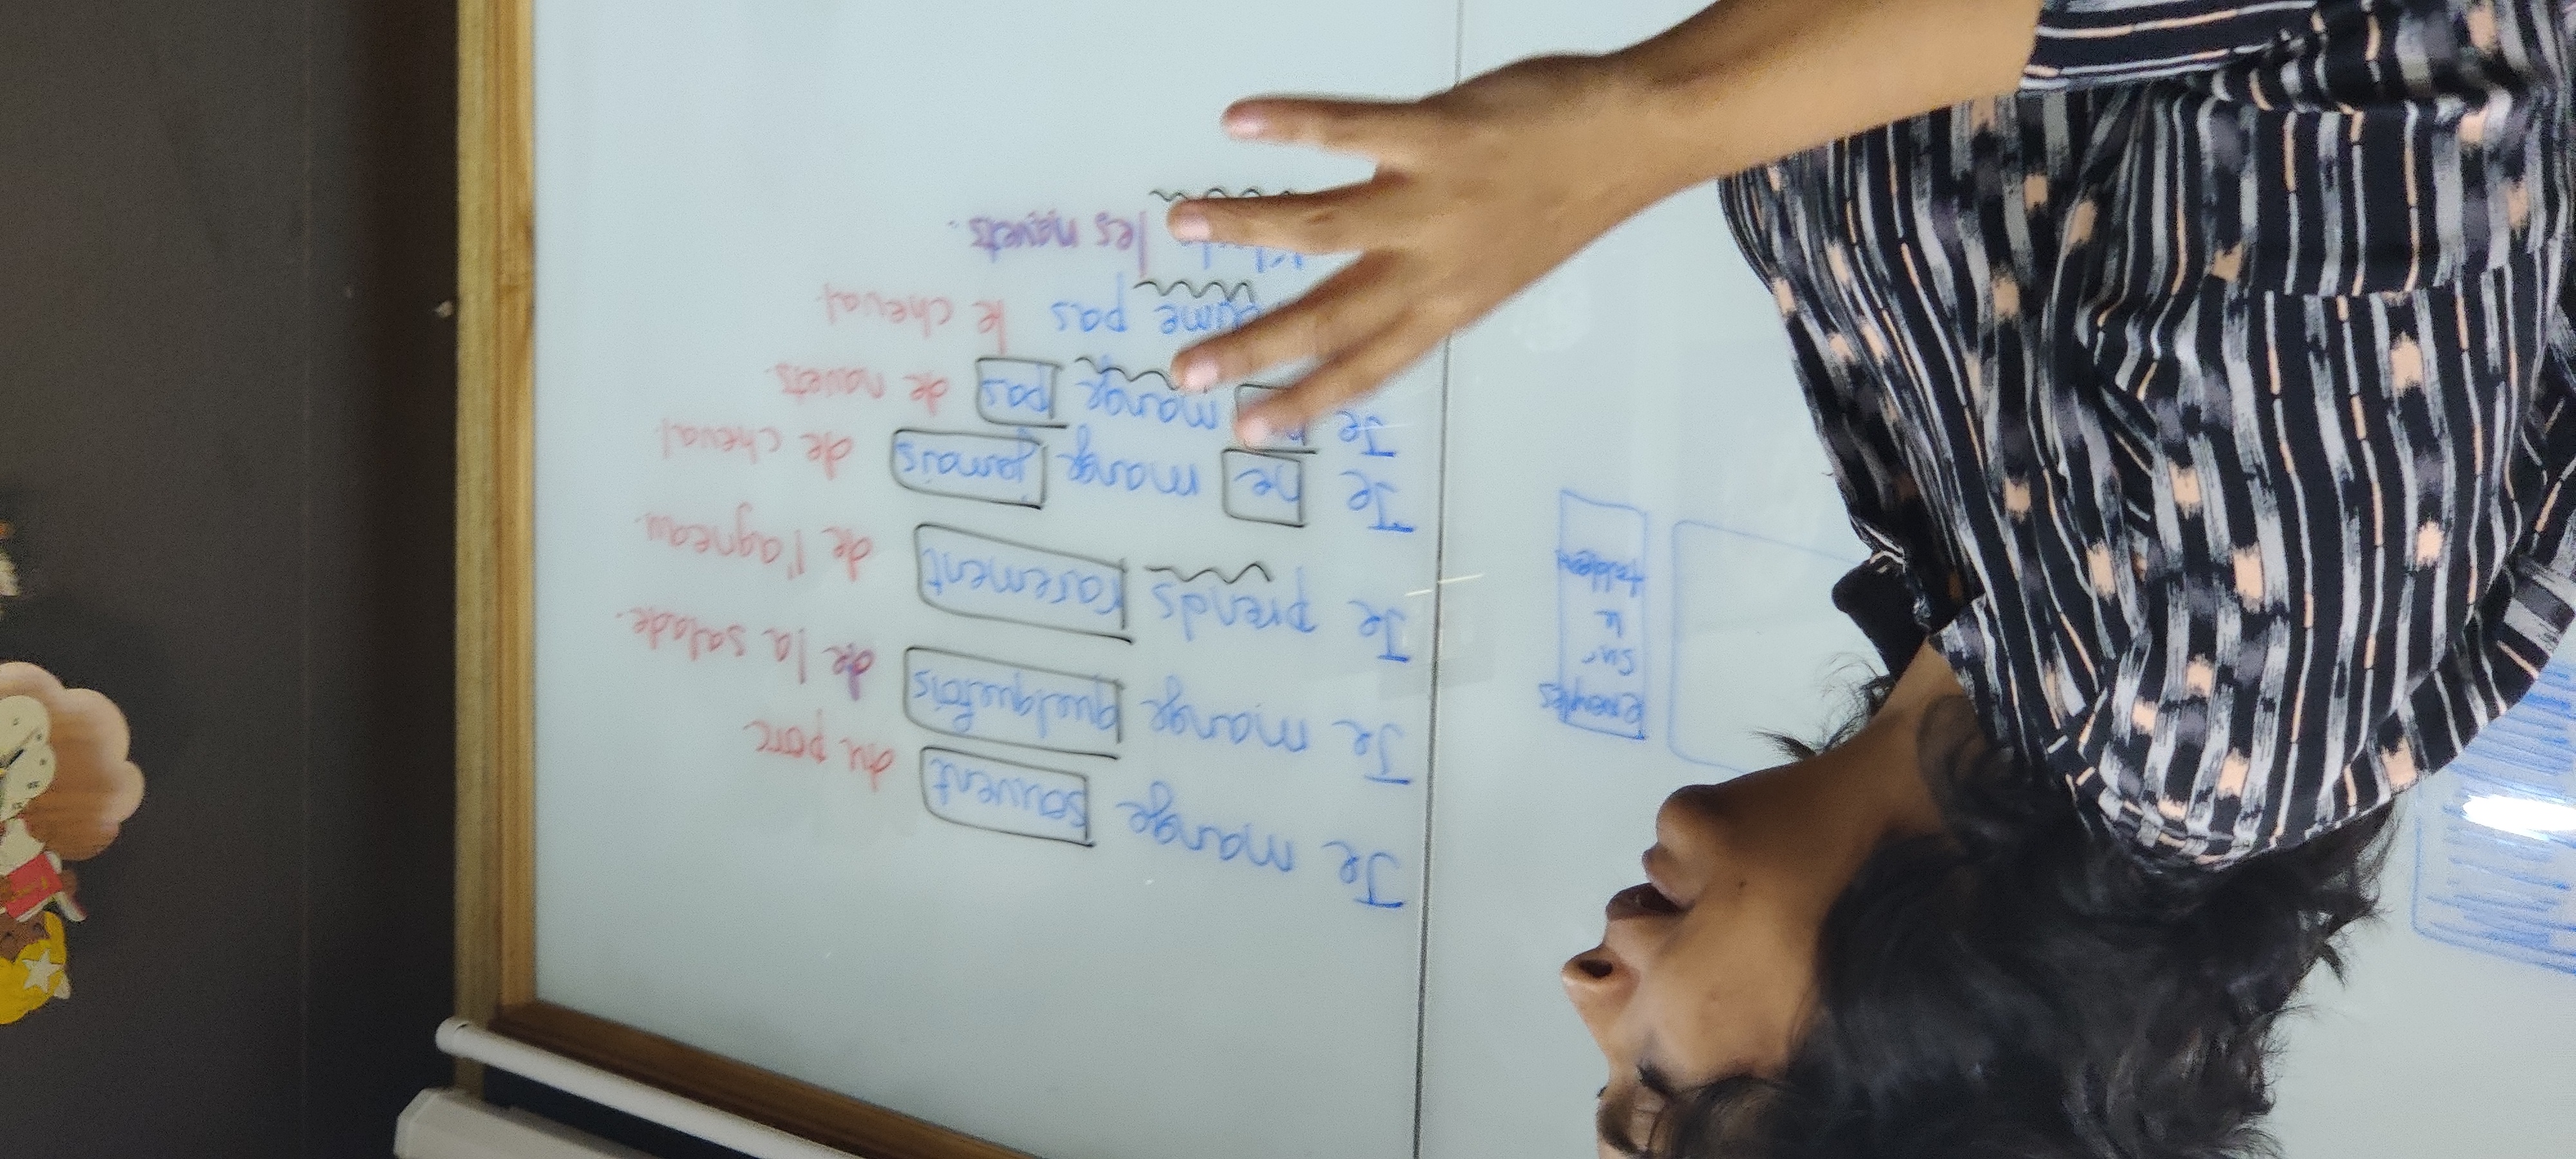 exemples
sur
le
tableau
Je mange souvent du porc
Je mange quelquefois de la salade.
Je prends rarement de l'agneau.
Je ne mange jamais de cheval.
Je mange pas de navets.
aime pas le cheval.
les navets.